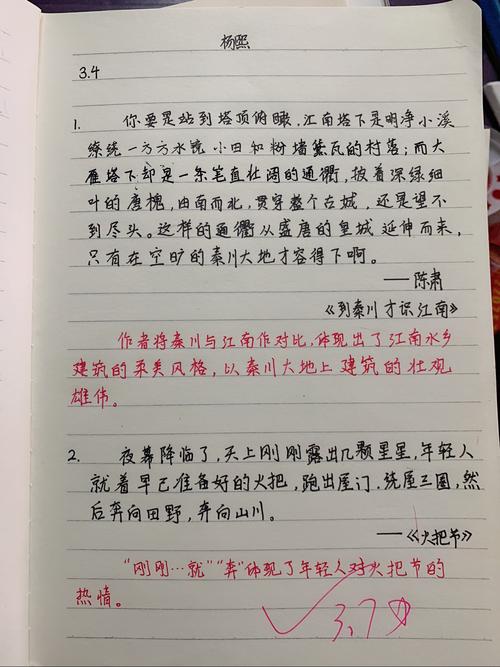 杨熙
3.4
1. 你要是站到塔顶俯瞰,江南塔下是明净小溪
缭绕一方方水镜小田和粉墙黛瓦的村落;而大
雁塔下却是一条笔直壮阔的通衢,披着深绿细
叶的唐槐,由南而北,贯穿整个古城,还是望不
到尽头。这样的通衢从盛唐的皇城延伸而来,
只有在空旷的秦川大地才容得下啊。
——陈肃
《到秦川才识江南》
作者将秦川与江南作对比,体现出了江南水乡
建筑的柔美风格,以秦川大地上建筑的壮观
雄伟。
2. 夜幕降临了,天上刚刚露出几颗星星,年轻人
就着早已准备好的火把,跑出屋门,绕屋三圈,然
后奔向田野,奔向山川。
——《火把节》
“刚刚…就”“奔”体现了年轻人对火把节的
热情。
3.7